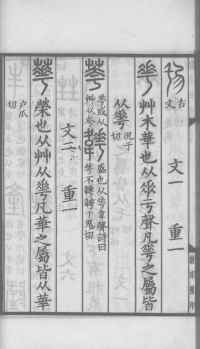 古文 文一 重一
𠌶 艸木華也从𠂹亏聲凡𠌶之屬皆
从𠌶 況于切
荂 𠌶或从艸从夸 韡 盛也从𠌶韋聲詩曰萼不韡韡于鬼切
文二 重一
華 榮也从艸从𠌶凡華之屬皆从華
戶瓜切